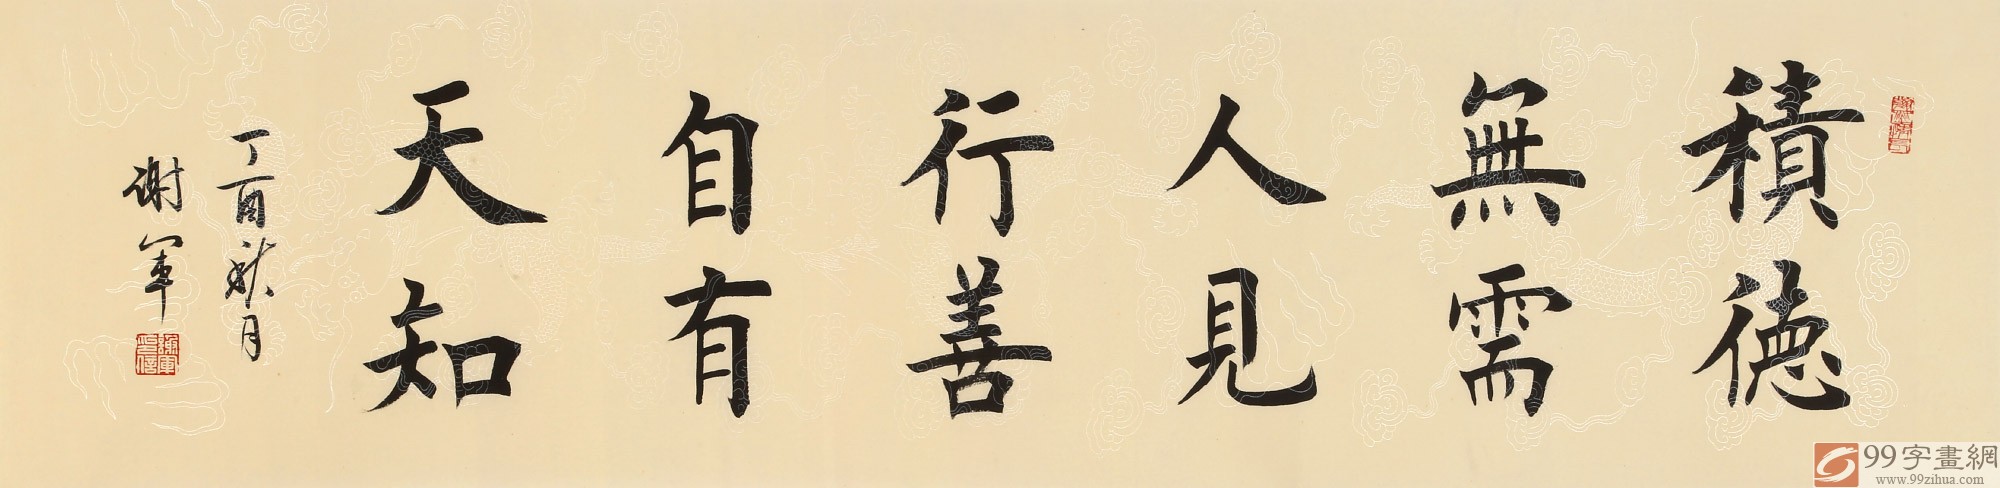 積德
無需
人見
行善
自有
天知
丁酉秋月
謝軍
99字畫網
www.99zihua.com